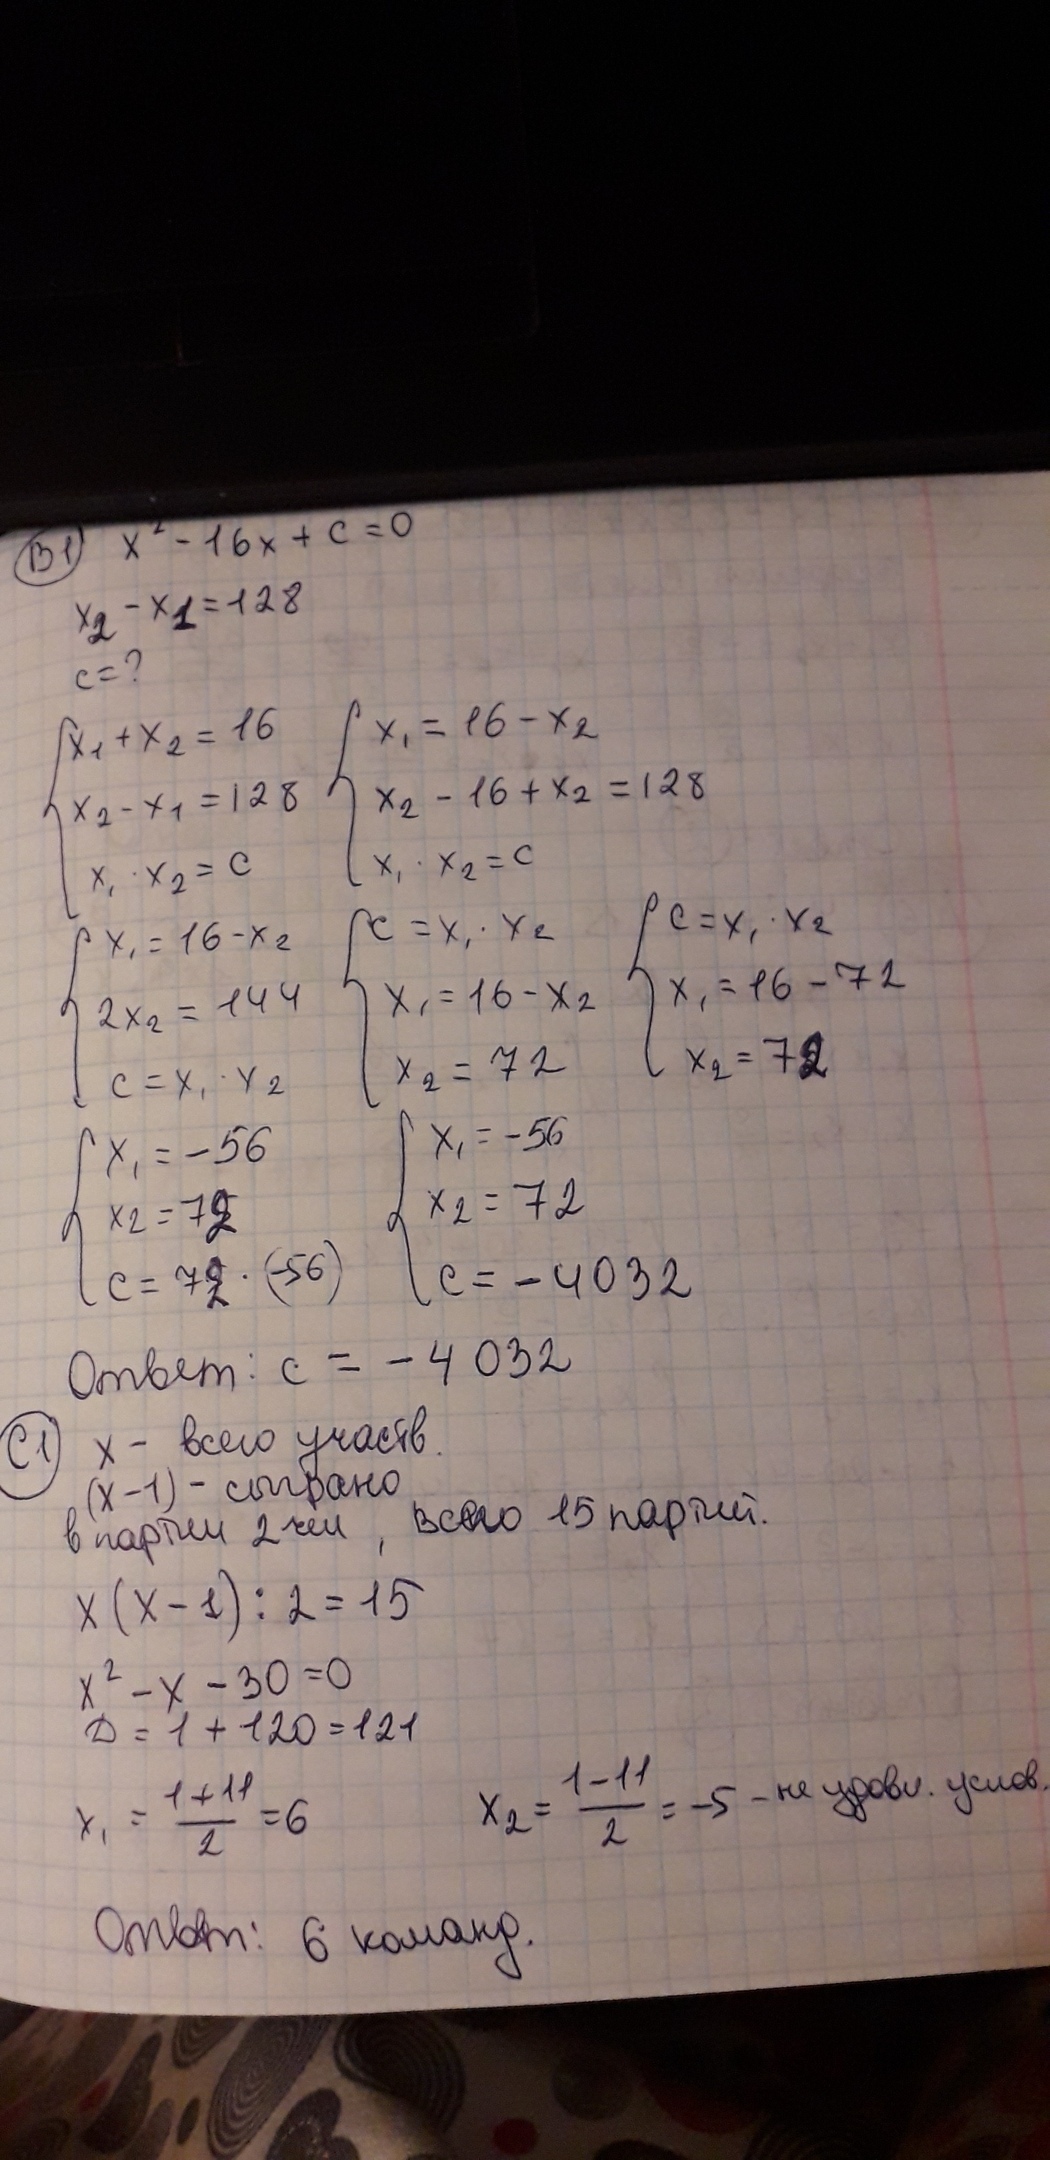 В1 x² - 16x + c = 0
x₂ - x₁ = 128
c = ?
x₁ + x₂ = 16
x₂ - x₁ = 128
x₁ · x₂ = c
x₁ = 16 - x₂
x₂ - 16 + x₂ = 128
x₁ · x₂ = c
x₁ = 16 - x₂
2x₂ = 144
c = x₁ · x₂
c = x₁ · x₂
x₁ = 16 - x₂
x₂ = 72
c = x₁ · x₂
x₁ = 16 - 72
x₂ = 72
x₁ = -56
x₂ = 72
c = 72 · (-56)
x₁ = -56
x₂ = 72
c = -4032
Ответ: c = -4032
С1 x - всего участв.
(x-1) - сыграно
в партии 2 чел, всего 15 партий.
x(x-1) : 2 = 15
x² - x - 30 = 0
D = 1 + 120 = 121
x₁ = (1+11)/2 = 6 x₂ = (1-11)/2 = -5 - не удовл. услов.
Ответ: 6 команд.